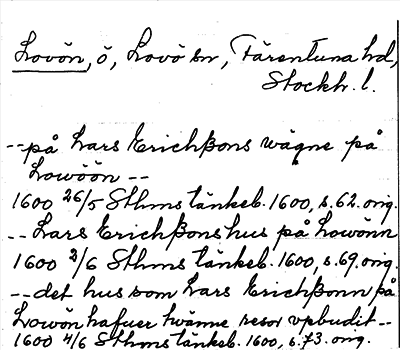 Lovön, ö, Lovö sn, Färentuna hd,
Stockh. l.
--på Lars Erichßons wägne på
Lowöön --
1600 26/5 Sthms tänkeb. 1600, s. 62. orig.
-- Lars Erichßons hus på Lowönn
1600 2/6 Sthms tänkeb. 1600, s. 69. orig.
-- det hus som Lars Erichßonn på
Lowön hafuer hwänne resor vpbudit --
1600 4/6 Sthms tänkeb. 1600, s. 73. orig.